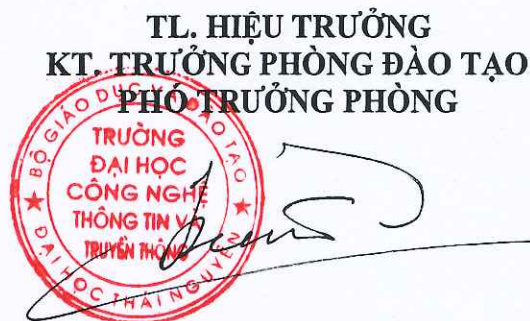 TL. HIỆU TRƯỞNG
KT. TRƯỞNG PHÒNG ĐÀO TẠO
PHÓ TRƯỞNG PHÒNG
BỘ GIÁO DỤC VÀ ĐÀO TẠO
TRƯỜNG
ĐẠI HỌC
CÔNG NGHỆ
THÔNG TIN VÀ
TRUYỀN THÔNG
ĐẠI HỌC THÁI NGUYÊN